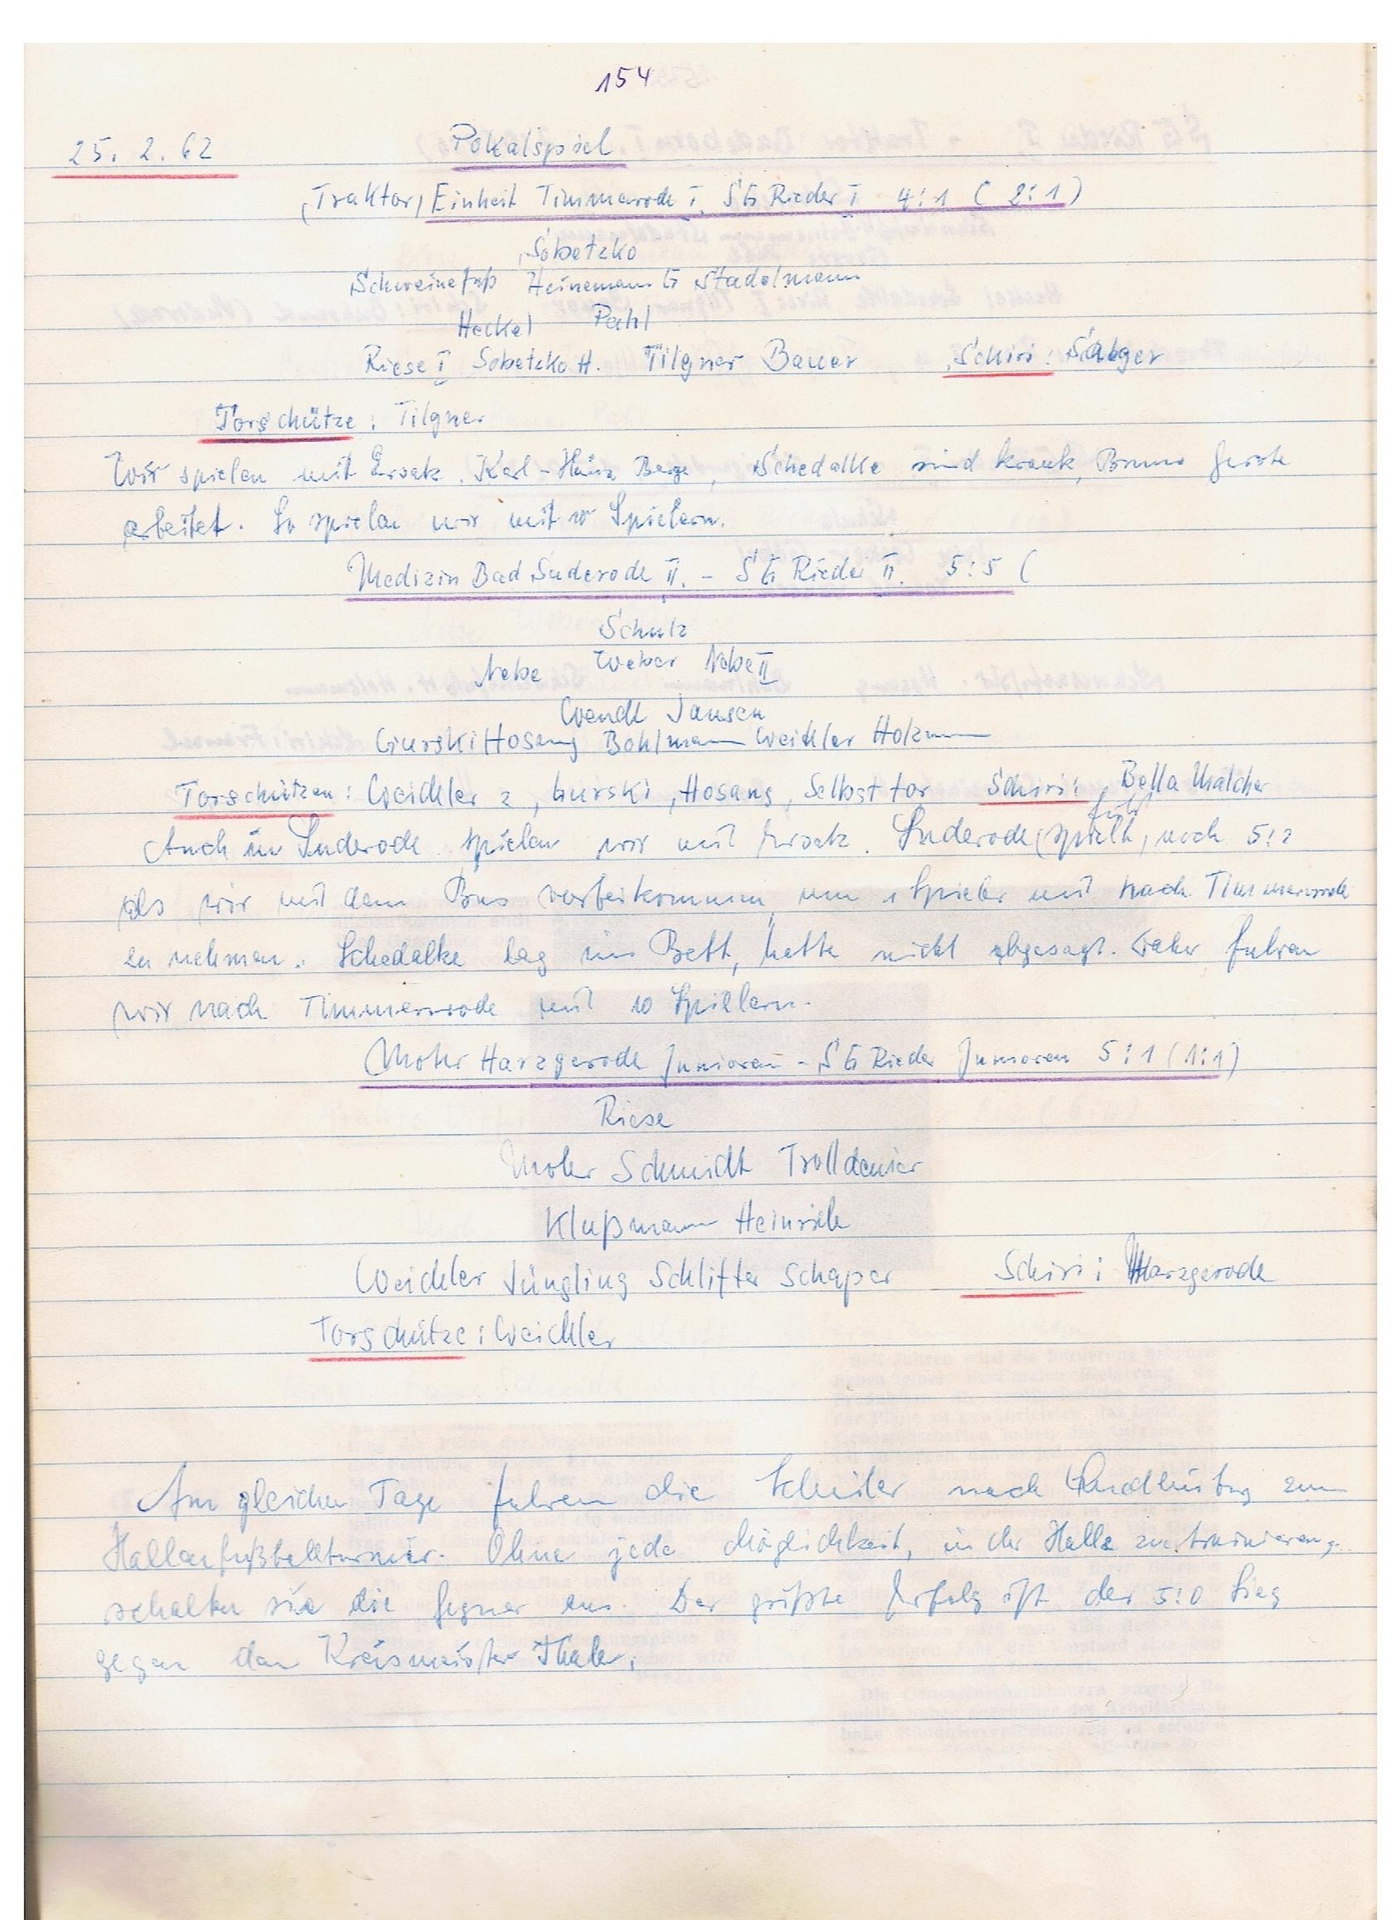 154
25. 2. 62 Pokalspiel
(Traktor) Einheit Timmerode I. SG Rieder I 4:1 ( 2:1)
Sobetzko
Schweinefuß Heinemann G Stadelmann
Heckel Pahl
Riese I Sobetzko H. Tilgner Bauer Schiri: Salger
Torschütze: Tilgner
Wir spielen mit Ersatz. Karl-Heinz Berge, Schedalke sind krank, Bruno
arbeitet. So spielen wir mit 10 Spielern.
Medizin Bad Suderode II. - SG Rieder II. 5:5 (
Schulz
Nebe Weber Nebe II
Wendt Jansen
Gurski Hosang Bohlmann Weichler Holzmann
Torschützen: Weichler 2, Gurski, Hosang, Selbsttor Schiri: Bella Malcher
führt
Auch in Suderode spielen wir mit Ersatz. Suderode (spielt) noch 5:2
als wir mit dem Bus vorbeikommen um 1 Spieler mit nach Timmerrode
zu nehmen. Schedalke lag im Bett, hatte nicht abgesagt. Daher fuhren
wir nach Timmerrode mit 10 Spielern.
Motor Harzgerode Junioren - SG Rieder Junioren 5:1 (1:1)
Riese
Mohr Schmidt Trolldenier
Klußmann Heinrich
Weichler Jüngling Schlifter Schaper Schiri: Harzgerode
Torschütze: Weichler
Am gleichen Tage fuhren die Schüler nach Quedlinburg zum
Hallenfußballturnier. Ohne jede Möglichkeit, in der Halle zu trainieren,
schalten sie die Gegner aus. Der größte Erfolg ist der 5:0 Sieg
gegen den Kreismeister Thale.